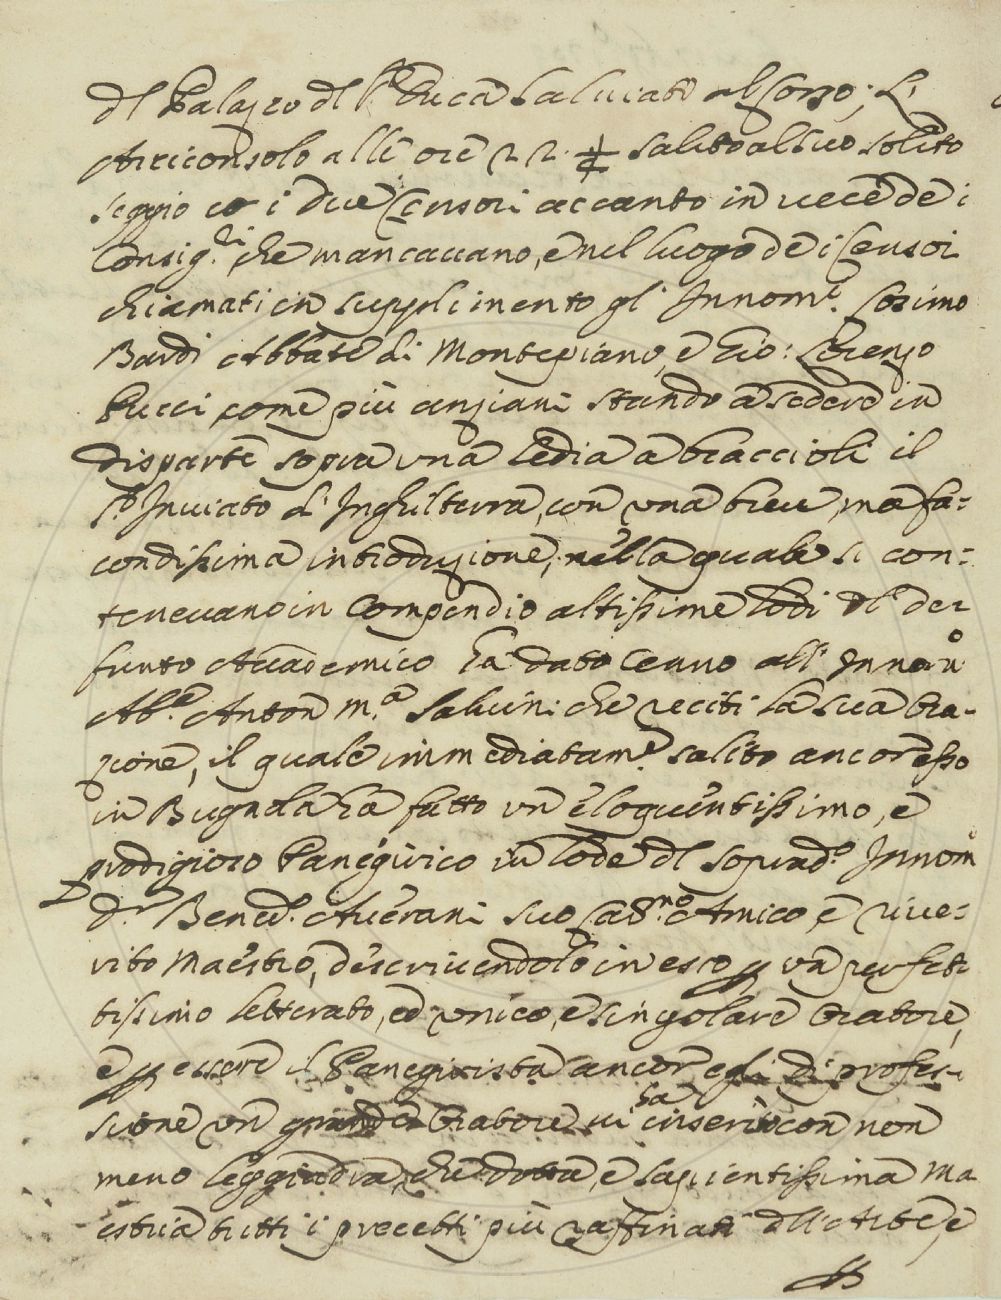 del Palazzo del Sr. Duca Salviati al Corso; L'
Arciconsolo alle ore 22 ½ salito al suo solito
seggio co i due Censori accanto in vece de i
Consig.ri che mancavano, e nel luogo de i Censori
chiamati in supplimento gl' Innom.i Cosimo
Bardi Abbate di Montepiano, e Gio: Lorenzo
Pucci come più anziani stando a sedere in
disparte sopra una sedia a braccioli il
S.r Inviato d' Inghilterra, con una breve, ma fa=
condissima introduzione, nella quale si con=
tenevano in compendio altissime lodi del de=
funto Accademico ha dato cenno all' Innom.o
Ab.e Anton M.a Salvini che reciti la sua Ora=
zione, il quale immediatam.e salito ancor esso
in Bugnola ha fatto un eloquentissimo, e
prodigioso Panegirico in lode del soprad.o Innom.o
D.r Bened.o Averani suo car.mo Amico, e rive=
rito Maestro, descrivendolo in esso p un perfet
tissimo letterato, ed unico, e singolare Oratore,
e p essere il Panegirista ancor egli di profes=
sione un grande Oratore vi ha inserito con non
meno leggiadra, che dotta, e sapientissima ma
estria tutti i precetti più raffinati dell' Arte, e